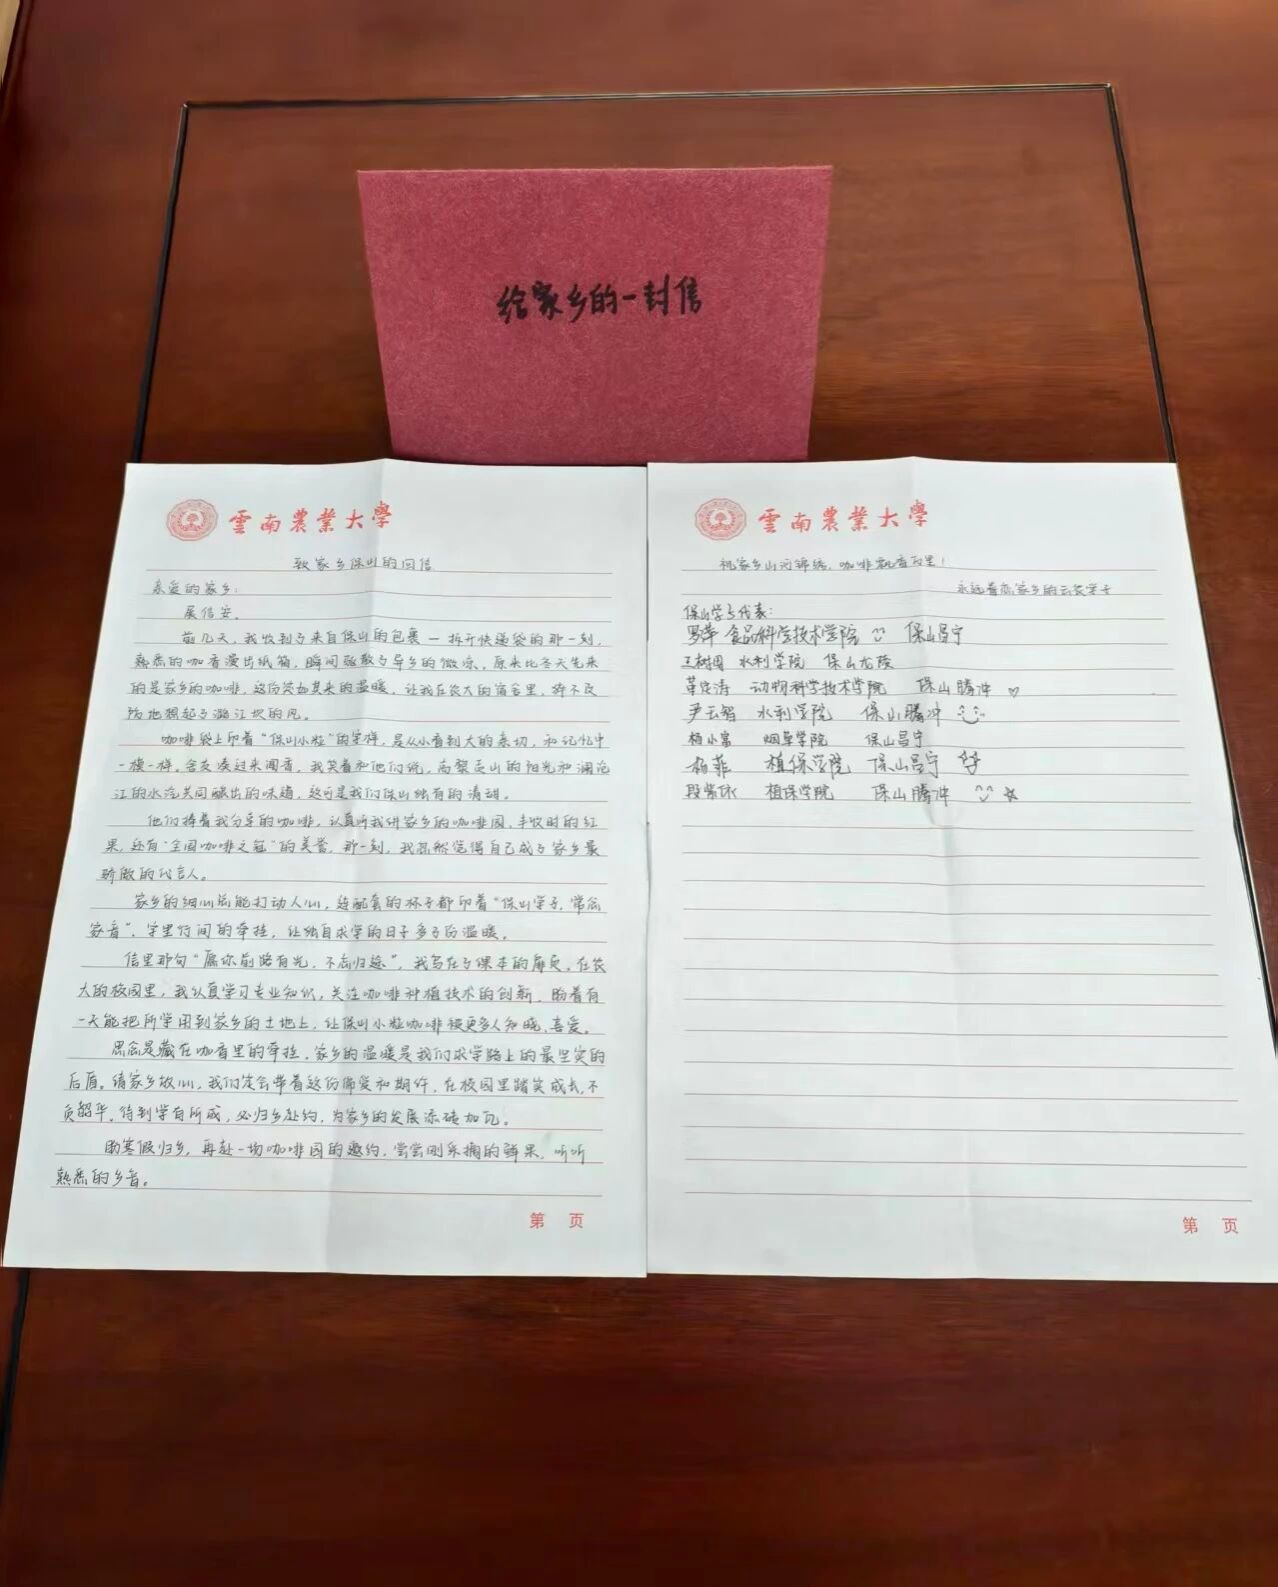 给家乡的一封信
雲南農業大學
致家乡保山的回信
亲爱的家乡：
展信安。
前几天，我收到了来自保山的包裹一拆开快递袋的那一刻，
熟悉的咖香漫出纸箱，瞬间驱散了异乡的微凉。原来比冬天先来
的是家乡的咖啡，这份突如其来的温暖，让我在农大的宿舍里，猝不及
防地想起了潞江坝的风。
咖啡袋上印着“保山小粒”的字样，是从小看到大的亲切，和记忆中
一模一样。舍友凑过来闻香，我笑着和他们说，高黎贡山的阳光和澜沧
江的水汽共同酿出的味道，这可是我们保山独有的清甜。
他们捧着我分享的咖啡，认真听我讲家乡的咖啡园，丰收时的红
果，还有“全国咖啡之冠”的美誉，那一刻，我忽然觉得自己成了家乡最
骄傲的代言人。
家乡的细心总能打动人心，连配套的杯子都印着“保山学子，常念
家音”，字里行间的牵挂，让独自求学的日子多了份温暖。
信里那句“愿你前路有光，不忘归途”，我写在了课本的扉页。在农
大的校园里，我认真学习专业知识，关注咖啡种植技术的创新，盼着有
一天能把所学用到家乡的土地上，让保山小粒咖啡被更多人知晓、喜爱。
思念是藏在咖香里的牵挂，家乡的温暖是我们求学路上的最坚实的
后盾。请家乡放心，我们定会带着这份偏爱和期许，在校园里踏实成长，不
负韶华，待到学有所成，必归乡赴约，为家乡的发展添砖加瓦。
盼寒假归乡，再赴一场咖啡园的邀约，尝尝刚采摘的鲜果，听听
熟悉的乡音。
第 页
雲南農業大學
祝家乡山河锦绣，咖啡飘香万里！
永远眷恋家乡的云农学子
保山学子代表：
罗萍 食品科学技术学院 保山昌宁
王树国 水利学院 保山龙陵
定涛 动物科学技术学院 保山腾冲
尹云智 水利学院 保山腾冲
杨小富 烟草学院 保山昌宁
杨菲 植保学院 保山昌宁
段紫依 植保学院 保山腾冲
第 页